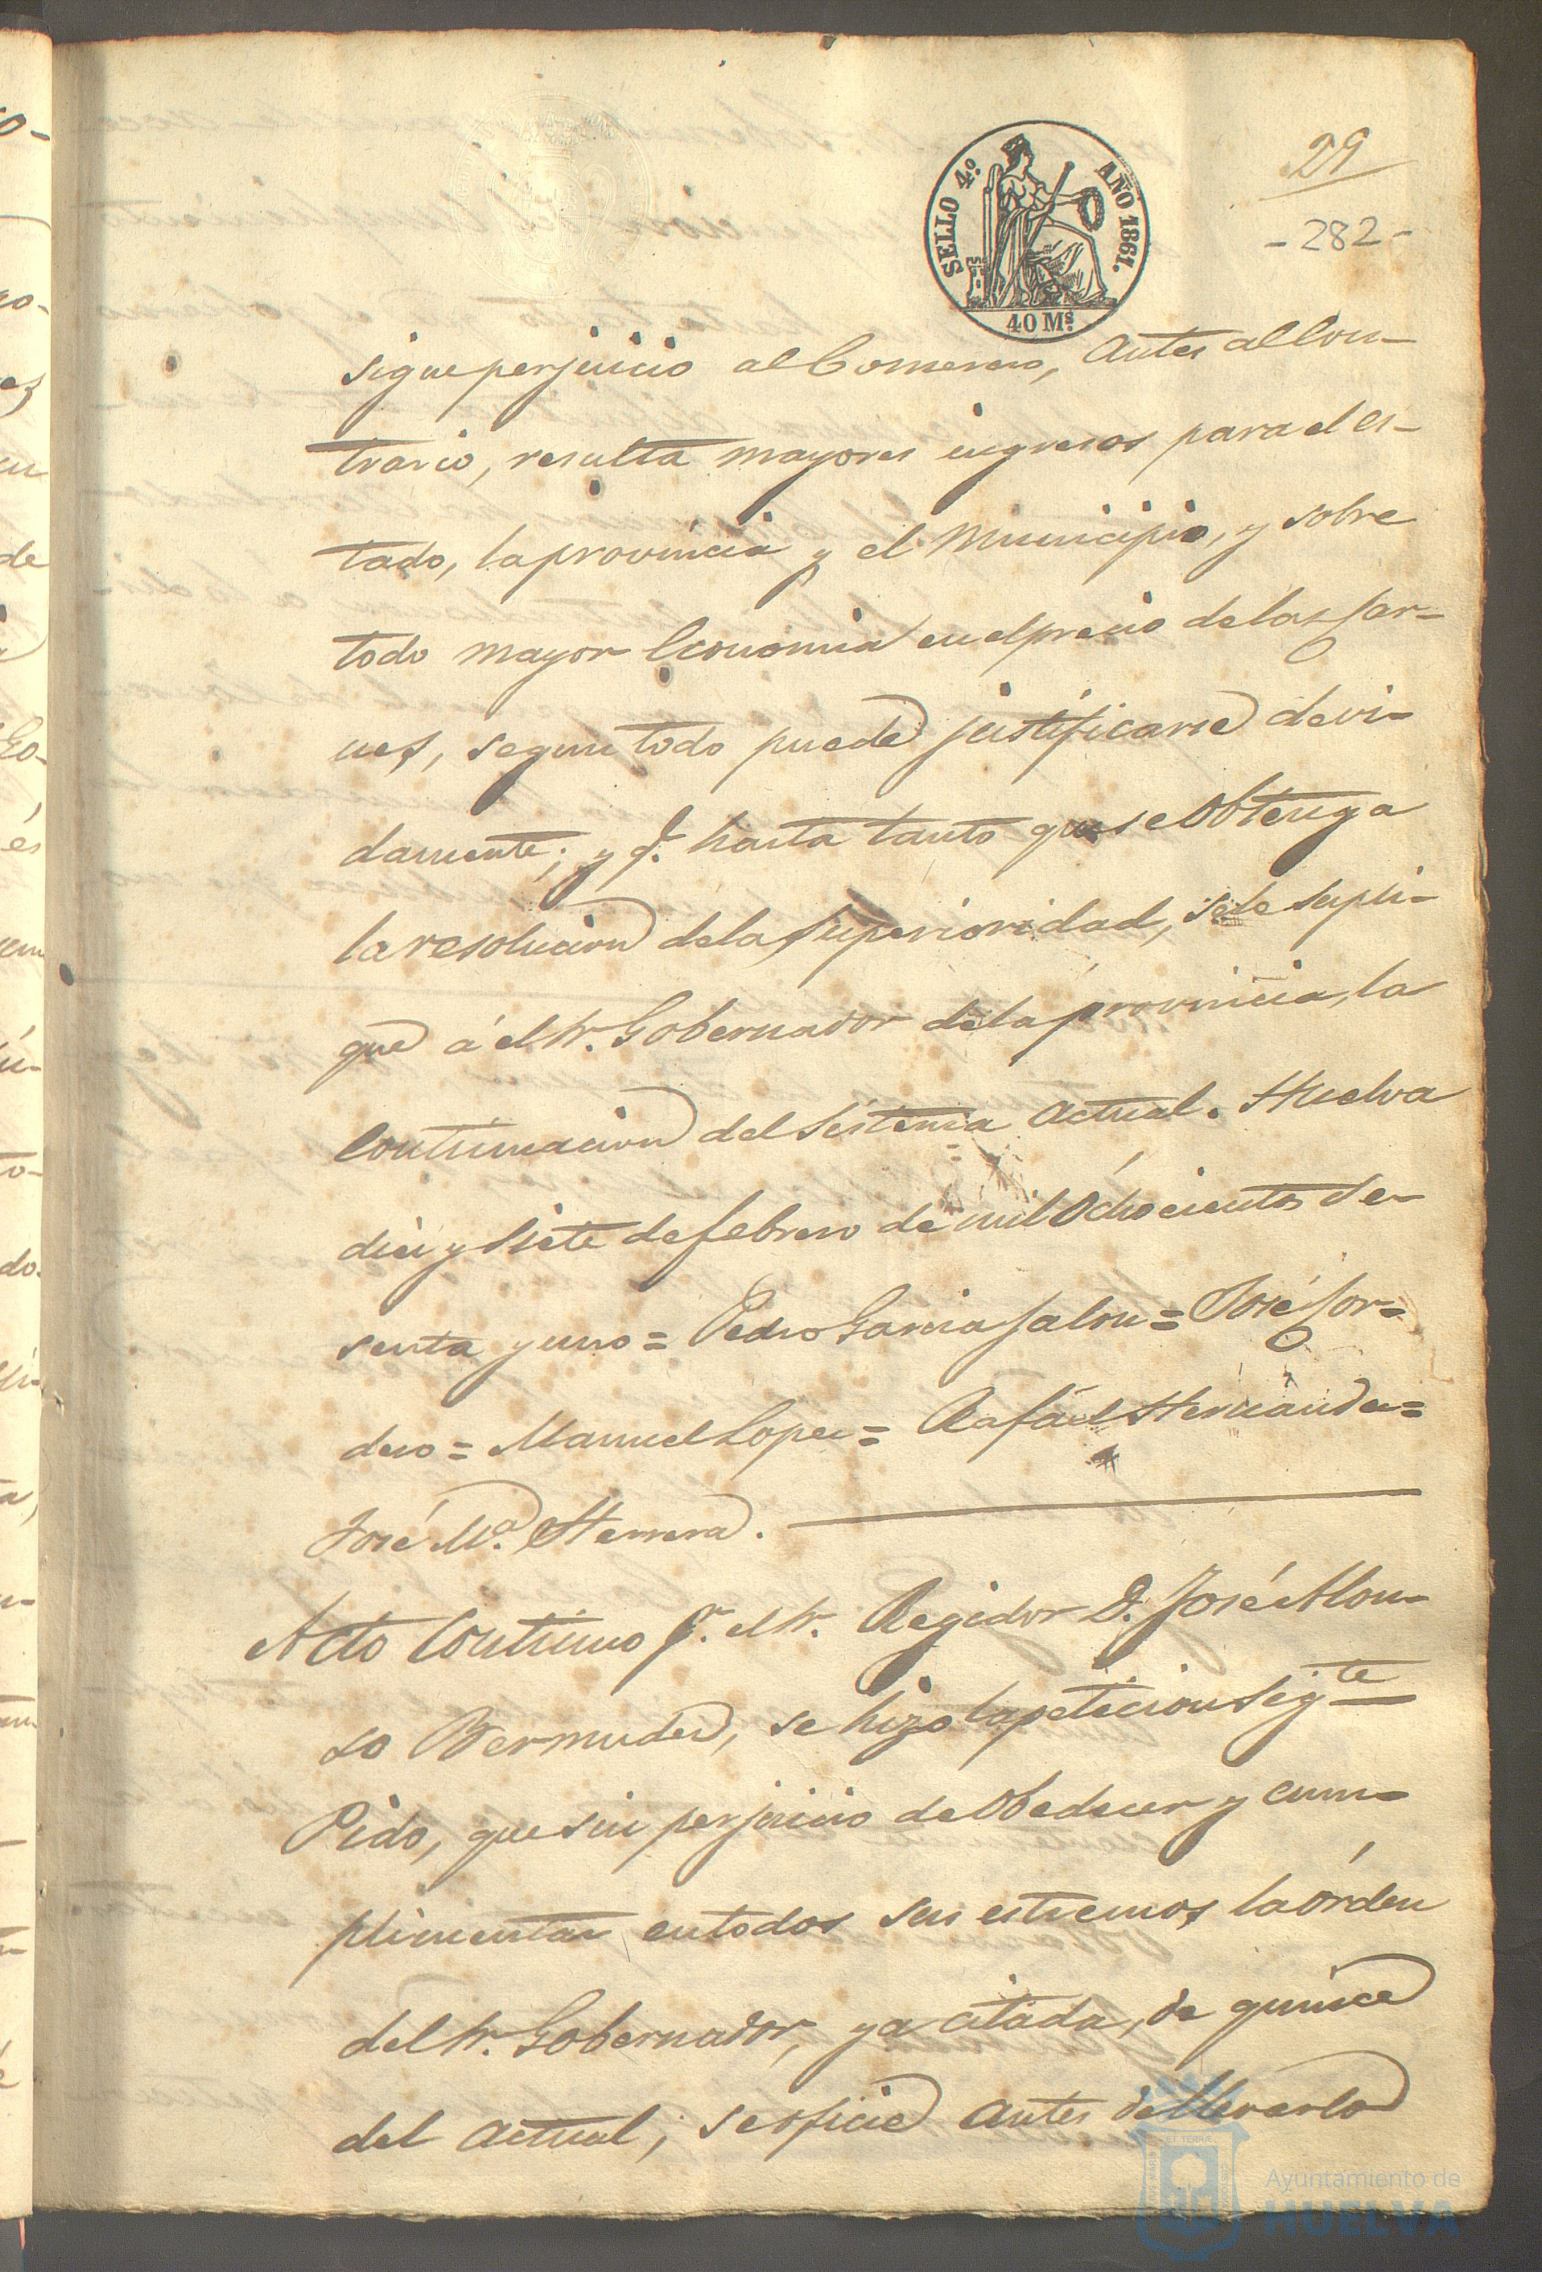 SELLO 4.º AÑO 1861.
40 Ms.
29
- 282 -
sigue perjuicio al Comercio, antes al con-
trario, resulta mayores ingresos para el es-
tado, la provincia y el Municipio, y sobre
todo mayor Economia en el precio de las Jar-
nes, segun todo puede justificarse devi-
damente; y q. hasta tanto que se obtenga
la resolucion de la Superioridad, se le supli-
que á el Sr. Gobernador de la provincia, la
Continuacion del Sistema actual. Huelva
diez y siete de febrero de mil Ochocientos se-
senta y uno = Pedro Garcia Jalon = José Jor-
dero = Manuel Lopez = Rafael Hernandez =
José Mª. Herrera.
Acto Continuo pr. el Sr. Regidor D. José Alon-
so Bermudez, se hizo la peticion sigte
Pido, que sin perjuicio de Obedecer y cum-
plimentar en todos sus estremos, la orden
del Sr. Gobernador, ya citada, de quince
del actual, se oficie antes de llevarlo
Ayuntamiento de
HUELVA